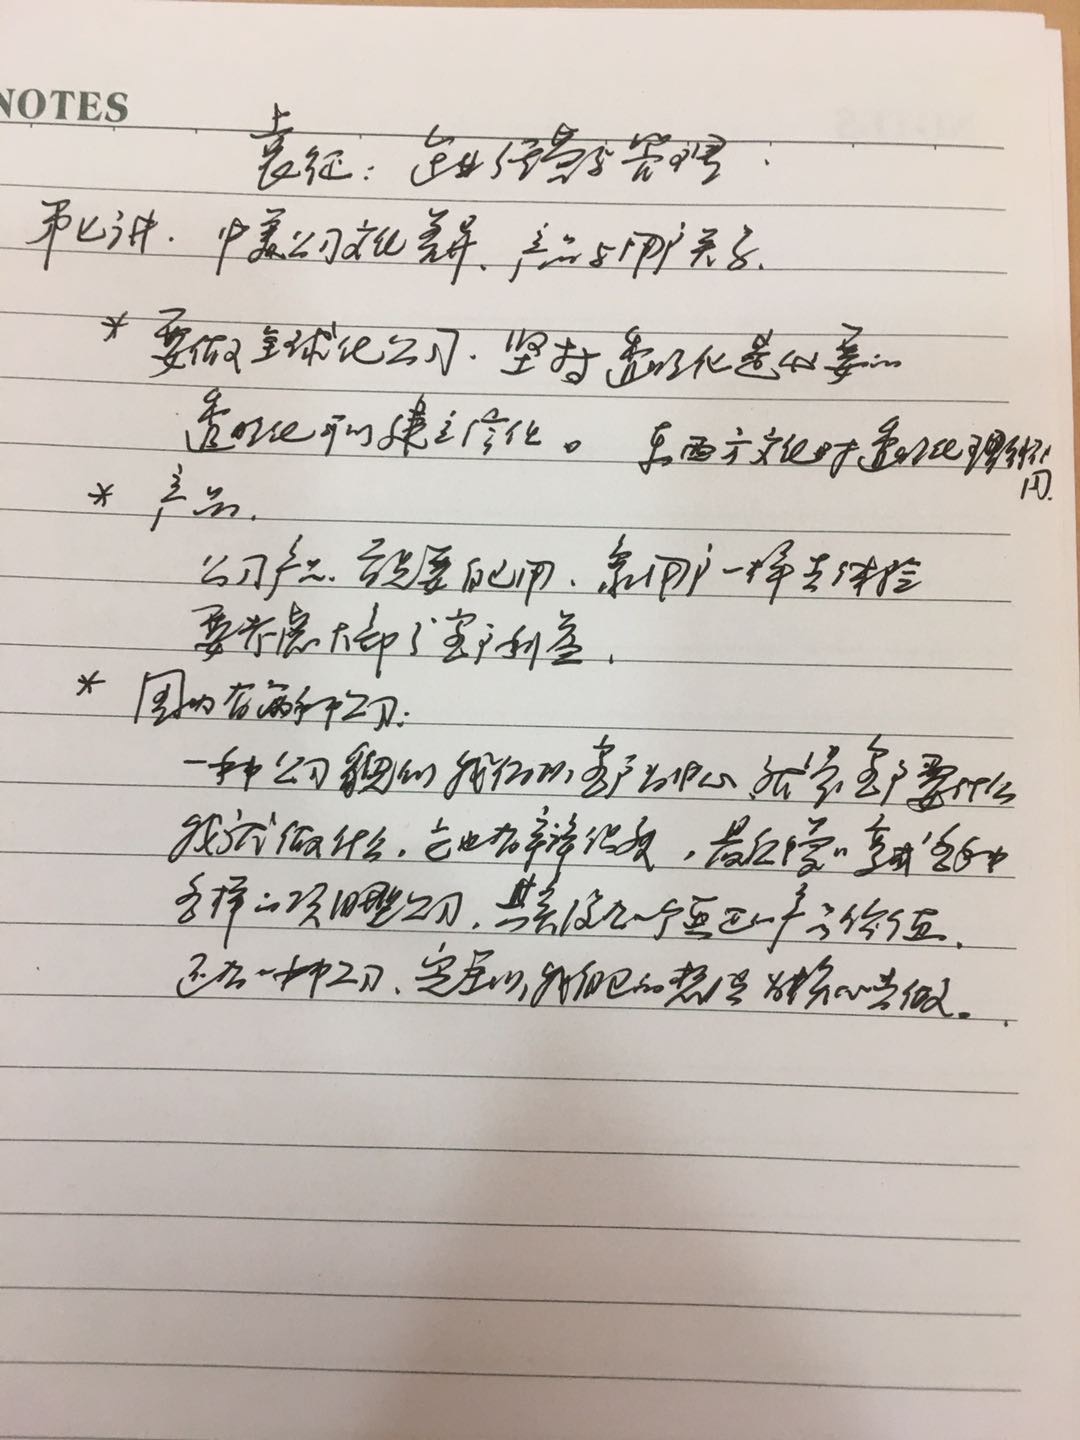 NOTES
长征：企业经营与管理
第七讲．中美公司文化差异、产品与用户关系．
* 要做全球化公司．坚持透明化是必要的
透明化可以建立信任。 东西方文化对透明化理解不同．
* 产品．
公司产品、首先要自己用、象用户一样去体验
要考虑大部分客户利益．
* 国内有两种公司：
一种公司 我们以客户为中心 就是客户要什么
我就做什么．它也有 ，最后 变成各种
各样的项目型公司．其实没有一个真正的产品价值．
还有一种公司、完全以我自己的想法为核心去做。